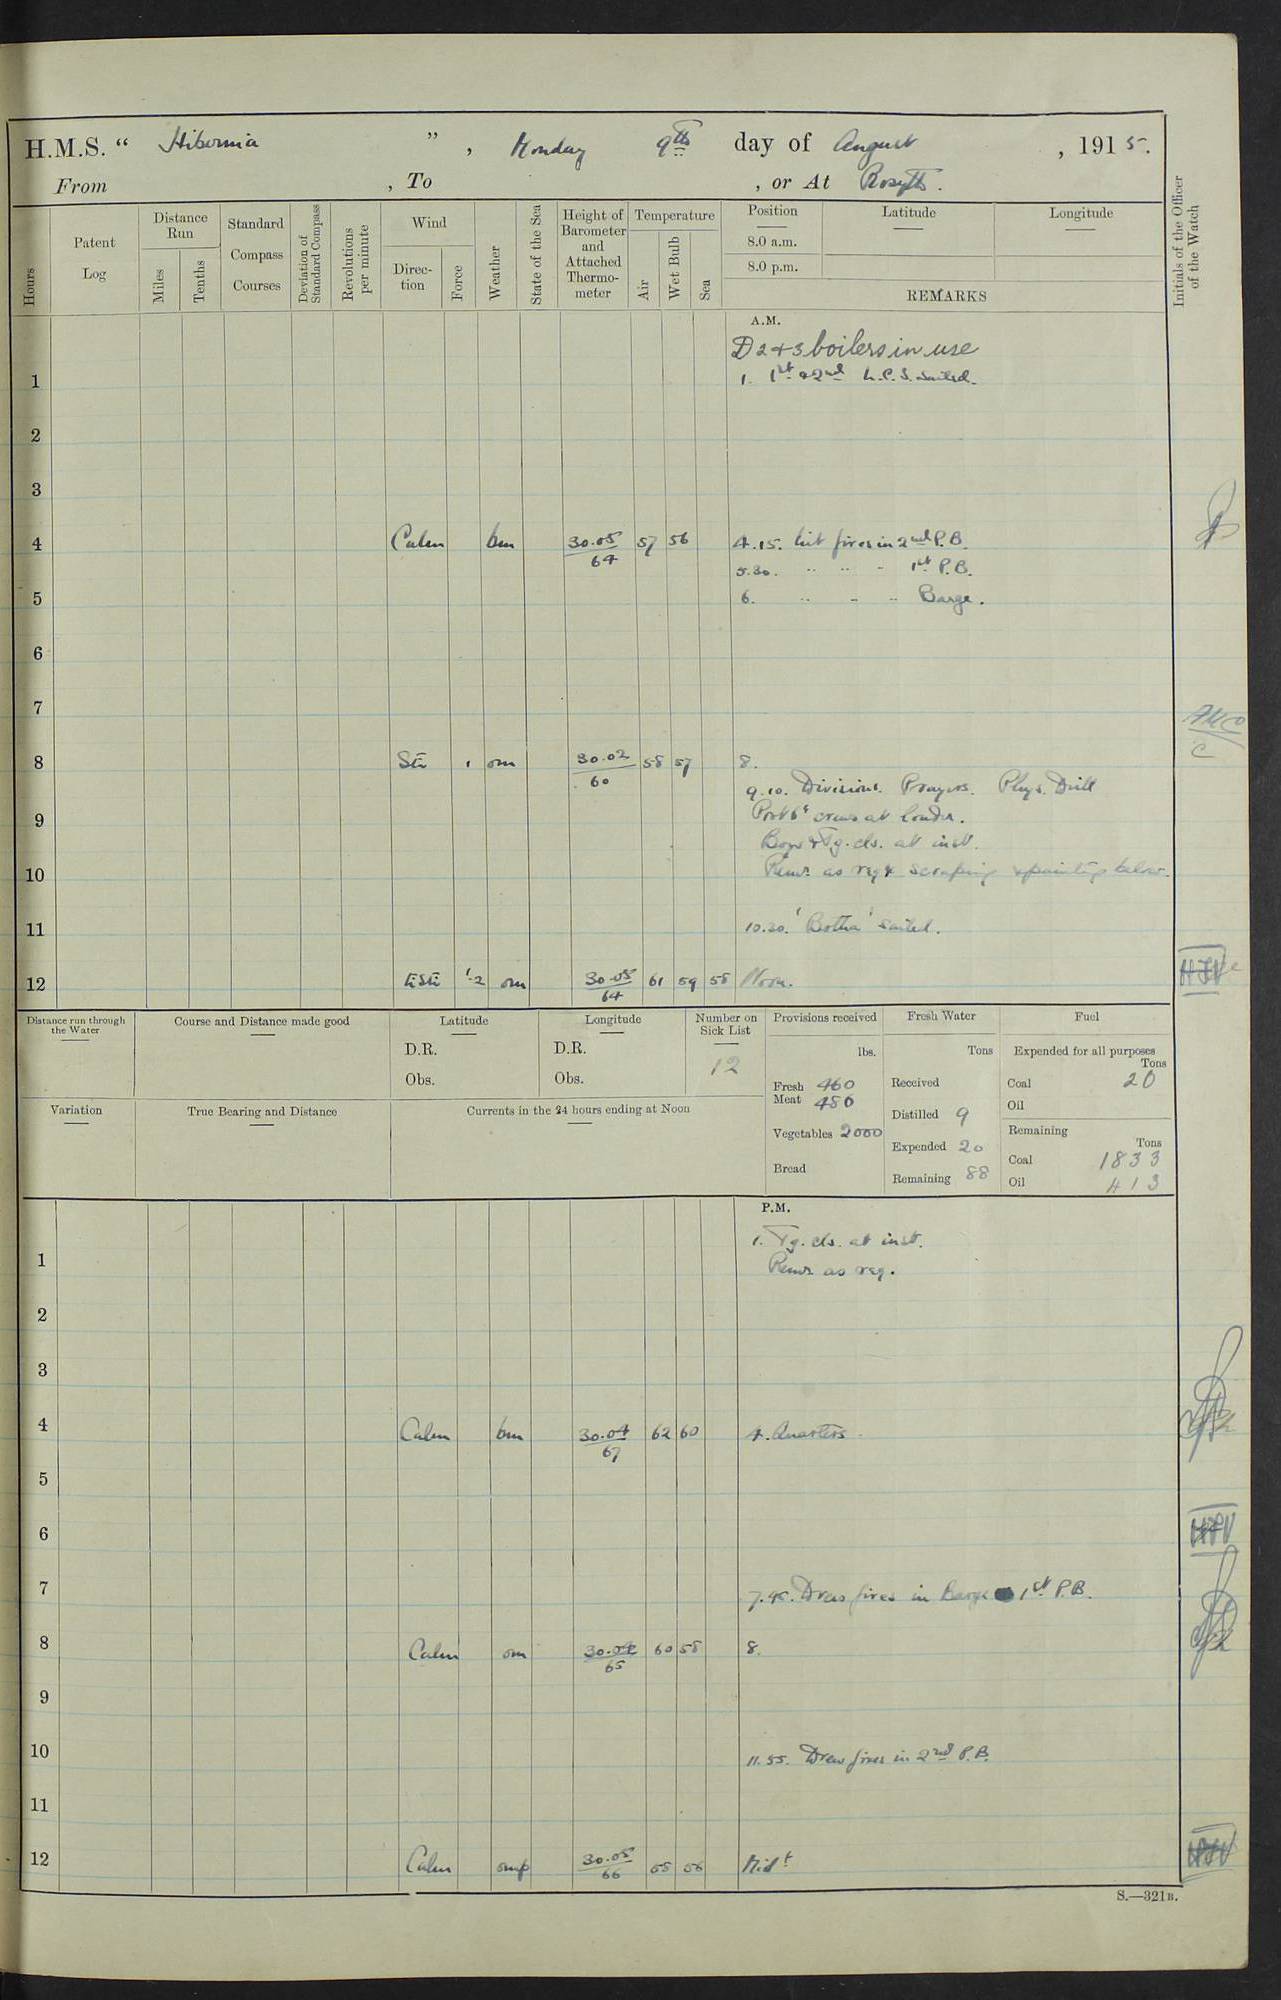 H.M.S. “ Hibernia ” , Monday 9th day of August , 1915.
From , To , or At Rosyth.
Hours
Patent Log
Distance Run
Miles
Tenths
Standard Compass Courses
Deviation of Standard Compass
Revolutions per minute
Wind
Direc-tion
Force
Weather
State of the Sea
Height of Barometer and Attached Thermo-meter
Temperature
Air
Wet Bulb
Sea
Position
8.0 a.m.
8.0 p.m.
Latitude
Longitude
REMARKS
Initials of the Officer of the Watch
A.M.
D 2 + 3 boilers in use
1 1. 1st & 2nd L.C.S. sailed.
2
3
4 Calm bm 30.05 64 57 56 4.15. Lit fires in 2nd P.B.
5.30. " " " 1st P.B.
5 6. " " " Barge.
6
7
8 1 om 30.02 60 58 57 8.
9.10. Divisions. Prayers. Phys. Drill
9 Port 6" crews at loader.
Boys & Tg. cls. at inst.
10 Remr. as reqd scraping & painting below.
11 10.30. 'Botha' sailed.
12 1-2 om 30.05 64 61 59 58 Noon.
Distance run through the Water
Course and Distance made good
Latitude
D.R.
Obs.
Longitude
D.R.
Obs.
Number on Sick List
12
Provisions received
lbs.
Fresh Meat 460
486
Vegetables 2000
Bread
Fresh Water
Tons
Received
Distilled 9
Expended 20
Remaining 88
Fuel
Expended for all purposes
Tons
Coal 20
Oil
Remaining
Tons
Coal 1833
Oil 413
Variation
True Bearing and Distance
Currents in the 24 hours ending at Noon
P.M.
1. Tg. cls. at inst.
1 Remr. as req.
2
3
4 Calm bm 30.04 67 62 60 4. Quarters.
5
6
7 7.45. Drew fires in Barge 1st P.B.
8 Calm om 30.04 65 60 58 8.
9
10 11.55. Drew fires in 2nd P.B.
11
12 Calm omp 30.05 66 58 56 Midt
S.—321B.